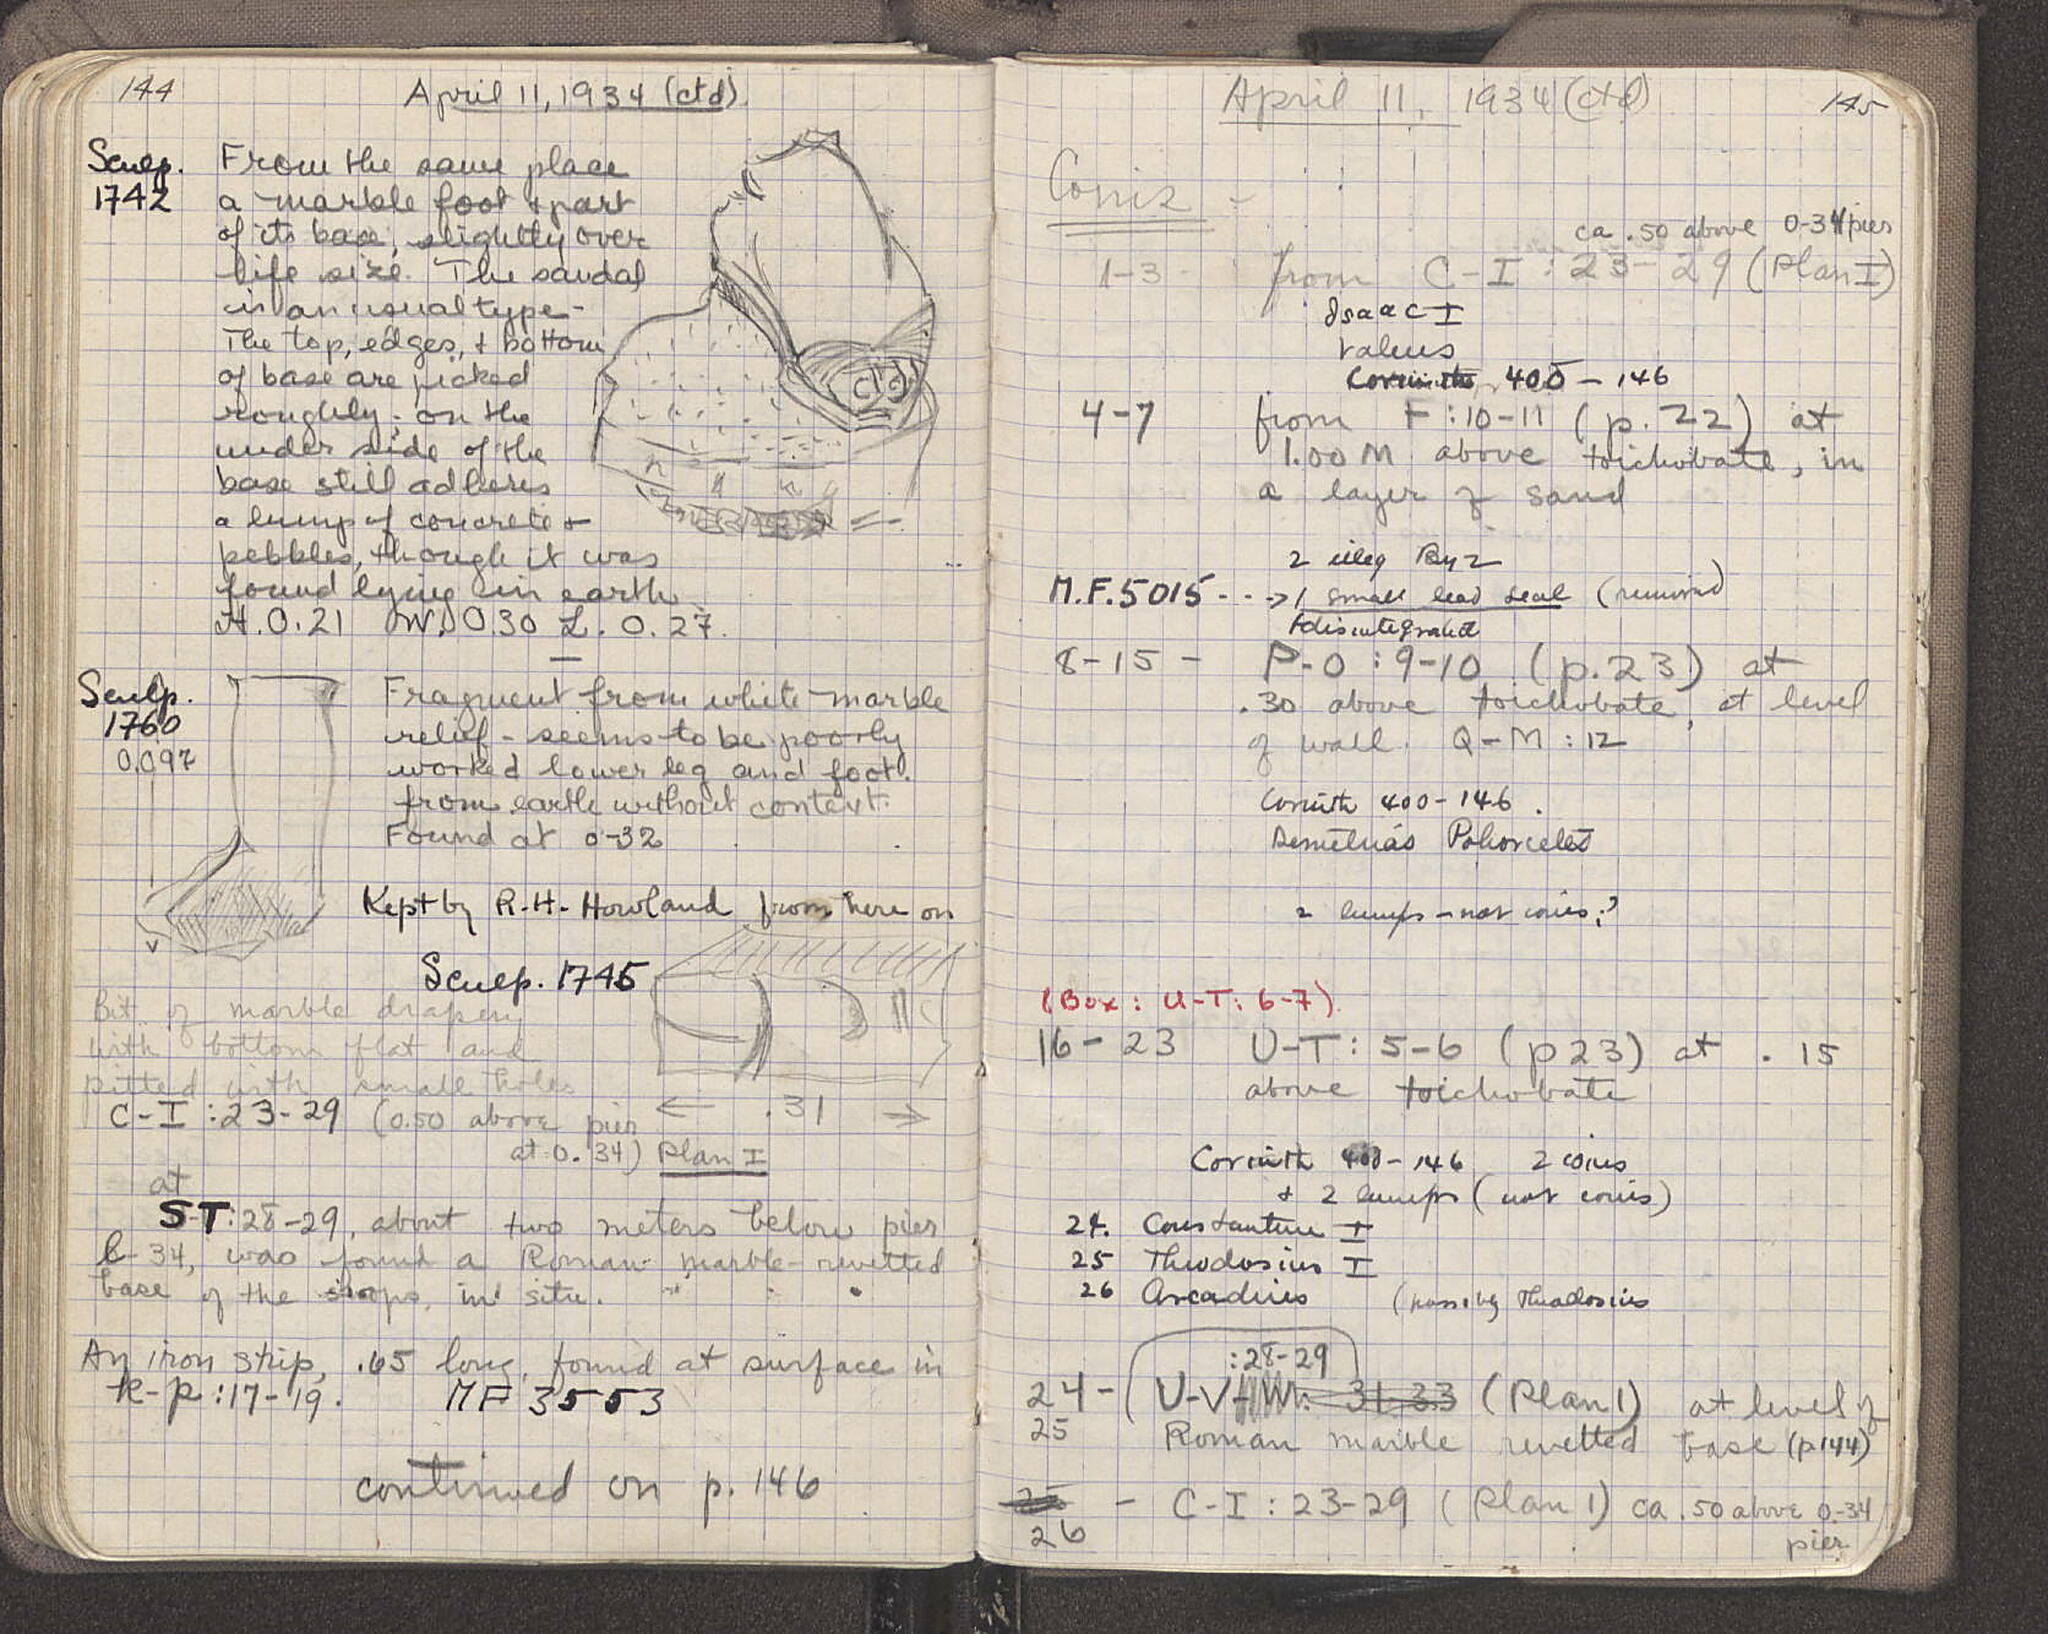 144
April 11, 1934 (ctd)
Sculp.
1742
From the same place
a marble foot + part
of its base, slightly over
life size. The sandal
is an usual type -
The top, edges, + bottom
of base are picked
roughly; on the
under side of the
base still adheres
a lump of concrete +
pebbles, though it was
found lying in earth
H. 0.21 W. 0.30 L. 0.27.
Sculp.
1760
0.097
Fragment from white marble
relief - seems to be poorly
worked lower leg and foot.
from earth without context.
Found at 0-32
Kept by R.H. Howland from here on
Sculp. 1745
Bit of marble drapery
with bottom flat and
pitted with small holes
C-I : 23-29 (0.50 above pier
at 0.34) Plan I
.31
at
S-T: 28-29, about two meters below pier
34, was found a Roman marble-revetted
base of the shops, in situ.
An iron strip, .65 long, found at surface in
K-P : 17-19. MF 3553
continued on p. 146
April 11, 1934 (ctd)
145
Coins -
ca .50 above 0-34 pier
1-3 from C-I : 23-29 (Plan I)
Isaac I
Valens
Corinth 400-146
4-7 from F:10-11 (p.22) at
1.00 M above toichobate, in
a layer of sand
2 illeg Byz
M.F.5015 --> 1 small lead seal (removed)
1 disintegrated
8-15 - P-O : 9-10 (p.23) at
.30 above toichobate, at level
of wall Q-M : 12
Corinth 400-146.
Demetrius Poliorcetes
2 lumps - not coins;?
(Box: U-T: 6-7)
16-23 U-T: 5-6 (p 23) at .15
above toichobate
Corinth 400-146 2 coins
+ 2 lumps (not coins)
24. Constantine I
25 Theodosius I
26 Arcadius (possibly Theodosius
:28-29
24 - U-V (Plan 1) at level of
25 Roman marble revetted base (p144)
- C-I : 23-29 (Plan 1) ca .50 above 0-34
26 pier